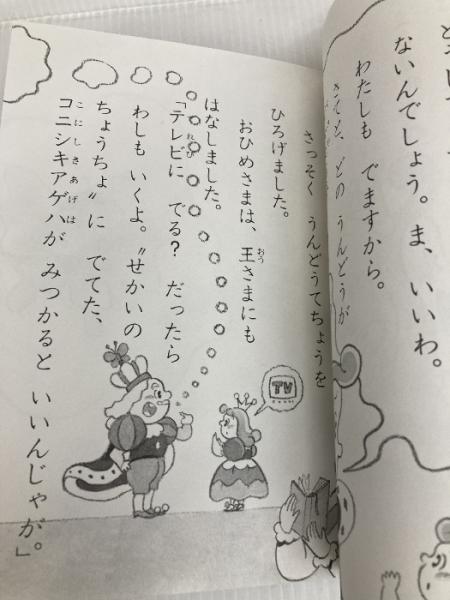 ないんでしょう。ま、いいわ。
わたしも でますから。
どの うんどうが
さっそく うんどうてちょうを
ひろげました。
おひめさまは、王さまにも
おう
はなしました。
「テレビに でる? だったら
れび
わしも いくよ。〝せかいの
ちょうちょ〟に でてた、
コニシキアゲハが みつかると いいんじゃが。」
こにしきあげは
TV